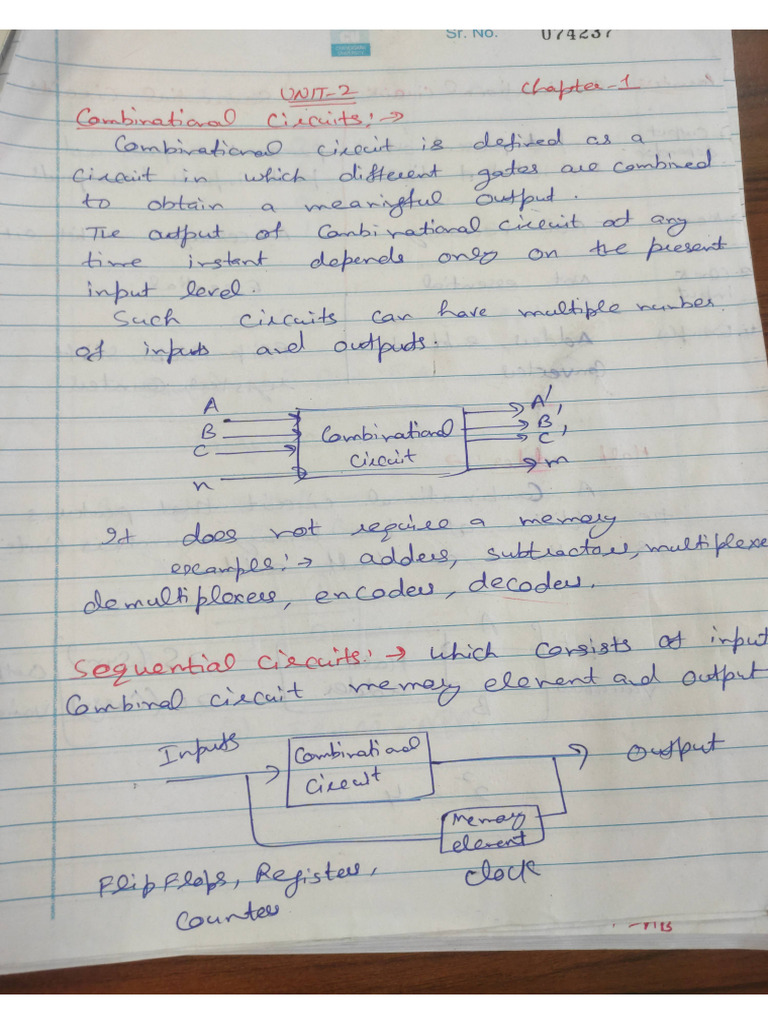 Sr. No. 074237
CU
UNIT-2 Chapter-1
Combinational Circuits:→
Combinational circuit is defined as a
circuit in which different gates are combined
to obtain a meaningful output.
The output of Combinational circuit at any
time instant depends only on the present
input level.
Such circuits can have multiple number
of inputs and outputs.
A
B
C
n
Combinational
Circuit
A'
B'
C'
m
It does not require a memory
example:→ adders, subtractors, multiplexe
demultiplexers, encoders, decoders.
Sequential circuits:→ which consists of input
Combinal circuit memory element and output
Inputs
Combinational
Circuit
Output
Memory
element
Clock
Flip Flops, Registers,
Counters